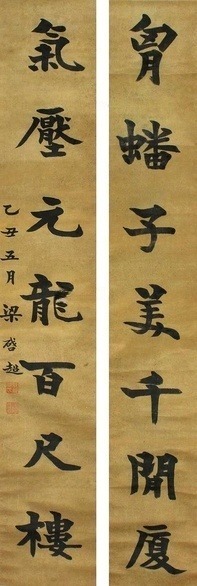 胷蟠子美千間廈
氣壓元龍百尺樓
乙丑五月 梁啓超